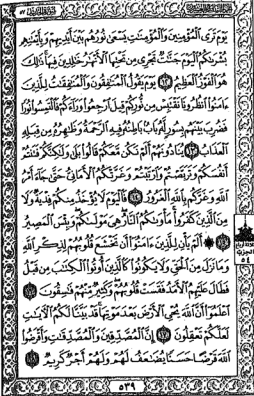 يَوْمَ تَرَى ٱلْمُؤْمِنِينَ وَٱلْمُؤْمِنَٰتِ يَسْعَىٰ نُورُهُم بَيْنَ أَيْدِيهِمْ وَبِأَيْمَٰنِهِم
بُشْرَىٰكُمُ ٱلْيَوْمَ جَنَّٰتٌ تَجْرِى مِن تَحْتِهَا ٱلْأَنْهَٰرُ خَٰلِدِينَ فِيهَا ذَٰلِكَ
هُوَ ٱلْفَوْزُ ٱلْعَظِيمُ ١٢ يَوْمَ يَقُولُ ٱلْمُنَٰفِقُونَ وَٱلْمُنَٰفِقَٰتُ لِلَّذِينَ
ءَامَنُوا۟ ٱنظُرُونَا نَقْتَبِسْ مِن نُّورِكُمْ قِيلَ ٱرْجِعُوا۟ وَرَآءَكُمْ فَٱلْتَمِسُوا۟ نُورًا
فَضُرِبَ بَيْنَهُم بِسُورٍ لَّهُۥ بَابٌۢ بَاطِنُهُۥ فِيهِ ٱلرَّحْمَةُ وَظَٰهِرُهُۥ مِن قِبَلِهِ
ٱلْعَذَابُ ١٣ يُنَادُونَهُمْ أَلَمْ نَكُن مَّعَكُمْ قَالُوا۟ بَلَىٰ وَلَٰكِنَّكُمْ فَتَنتُمْ
أَنفُسَكُمْ وَتَرَبَّصْتُمْ وَٱرْتَبْتُمْ وَغَرَّتْكُمُ ٱلْأَمَانِىُّ حَتَّىٰ جَآءَ أَمْرُ
ٱللَّهِ وَغَرَّكُم بِٱللَّهِ ٱلْغَرُورُ ١٤ فَٱلْيَوْمَ لَا يُؤْخَذُ مِنكُمْ فِدْيَةٌ وَلَا
مِنَ ٱلَّذِينَ كَفَرُوا۟ مَأْوَىٰكُمُ ٱلنَّارُ هِىَ مَوْلَىٰكُمْ وَبِئْسَ ٱلْمَصِيرُ
١٥ أَلَمْ يَأْنِ لِلَّذِينَ ءَامَنُوٓا۟ أَن تَخْشَعَ قُلُوبُهُمْ لِذِكْرِ ٱللَّهِ
وَمَا نَزَلَ مِنَ ٱلْحَقِّ وَلَا يَكُونُوا۟ كَٱلَّذِينَ أُوتُوا۟ ٱلْكِتَٰبَ مِن قَبْلُ
فَطَالَ عَلَيْهِمُ ٱلْأَمَدُ فَقَسَتْ قُلُوبُهُمْ وَكَثِيرٌ مِّنْهُمْ فَٰسِقُونَ ١٦
ٱعْلَمُوٓا۟ أَنَّ ٱللَّهَ يُحْىِ ٱلْأَرْضَ بَعْدَ مَوْتِهَا قَدْ بَيَّنَّا لَكُمُ ٱلْءَايَٰتِ
لَعَلَّكُمْ تَعْقِلُونَ ١٧ إِنَّ ٱلْمُصَّدِّقِينَ وَٱلْمُصَّدِّقَٰتِ وَأَقْرَضُوا۟
ٱللَّهَ قَرْضًا حَسَنًا يُضَٰعَفُ لَهُمْ وَلَهُمْ أَجْرٌ كَرِيمٌ ١٨
٥٣٩